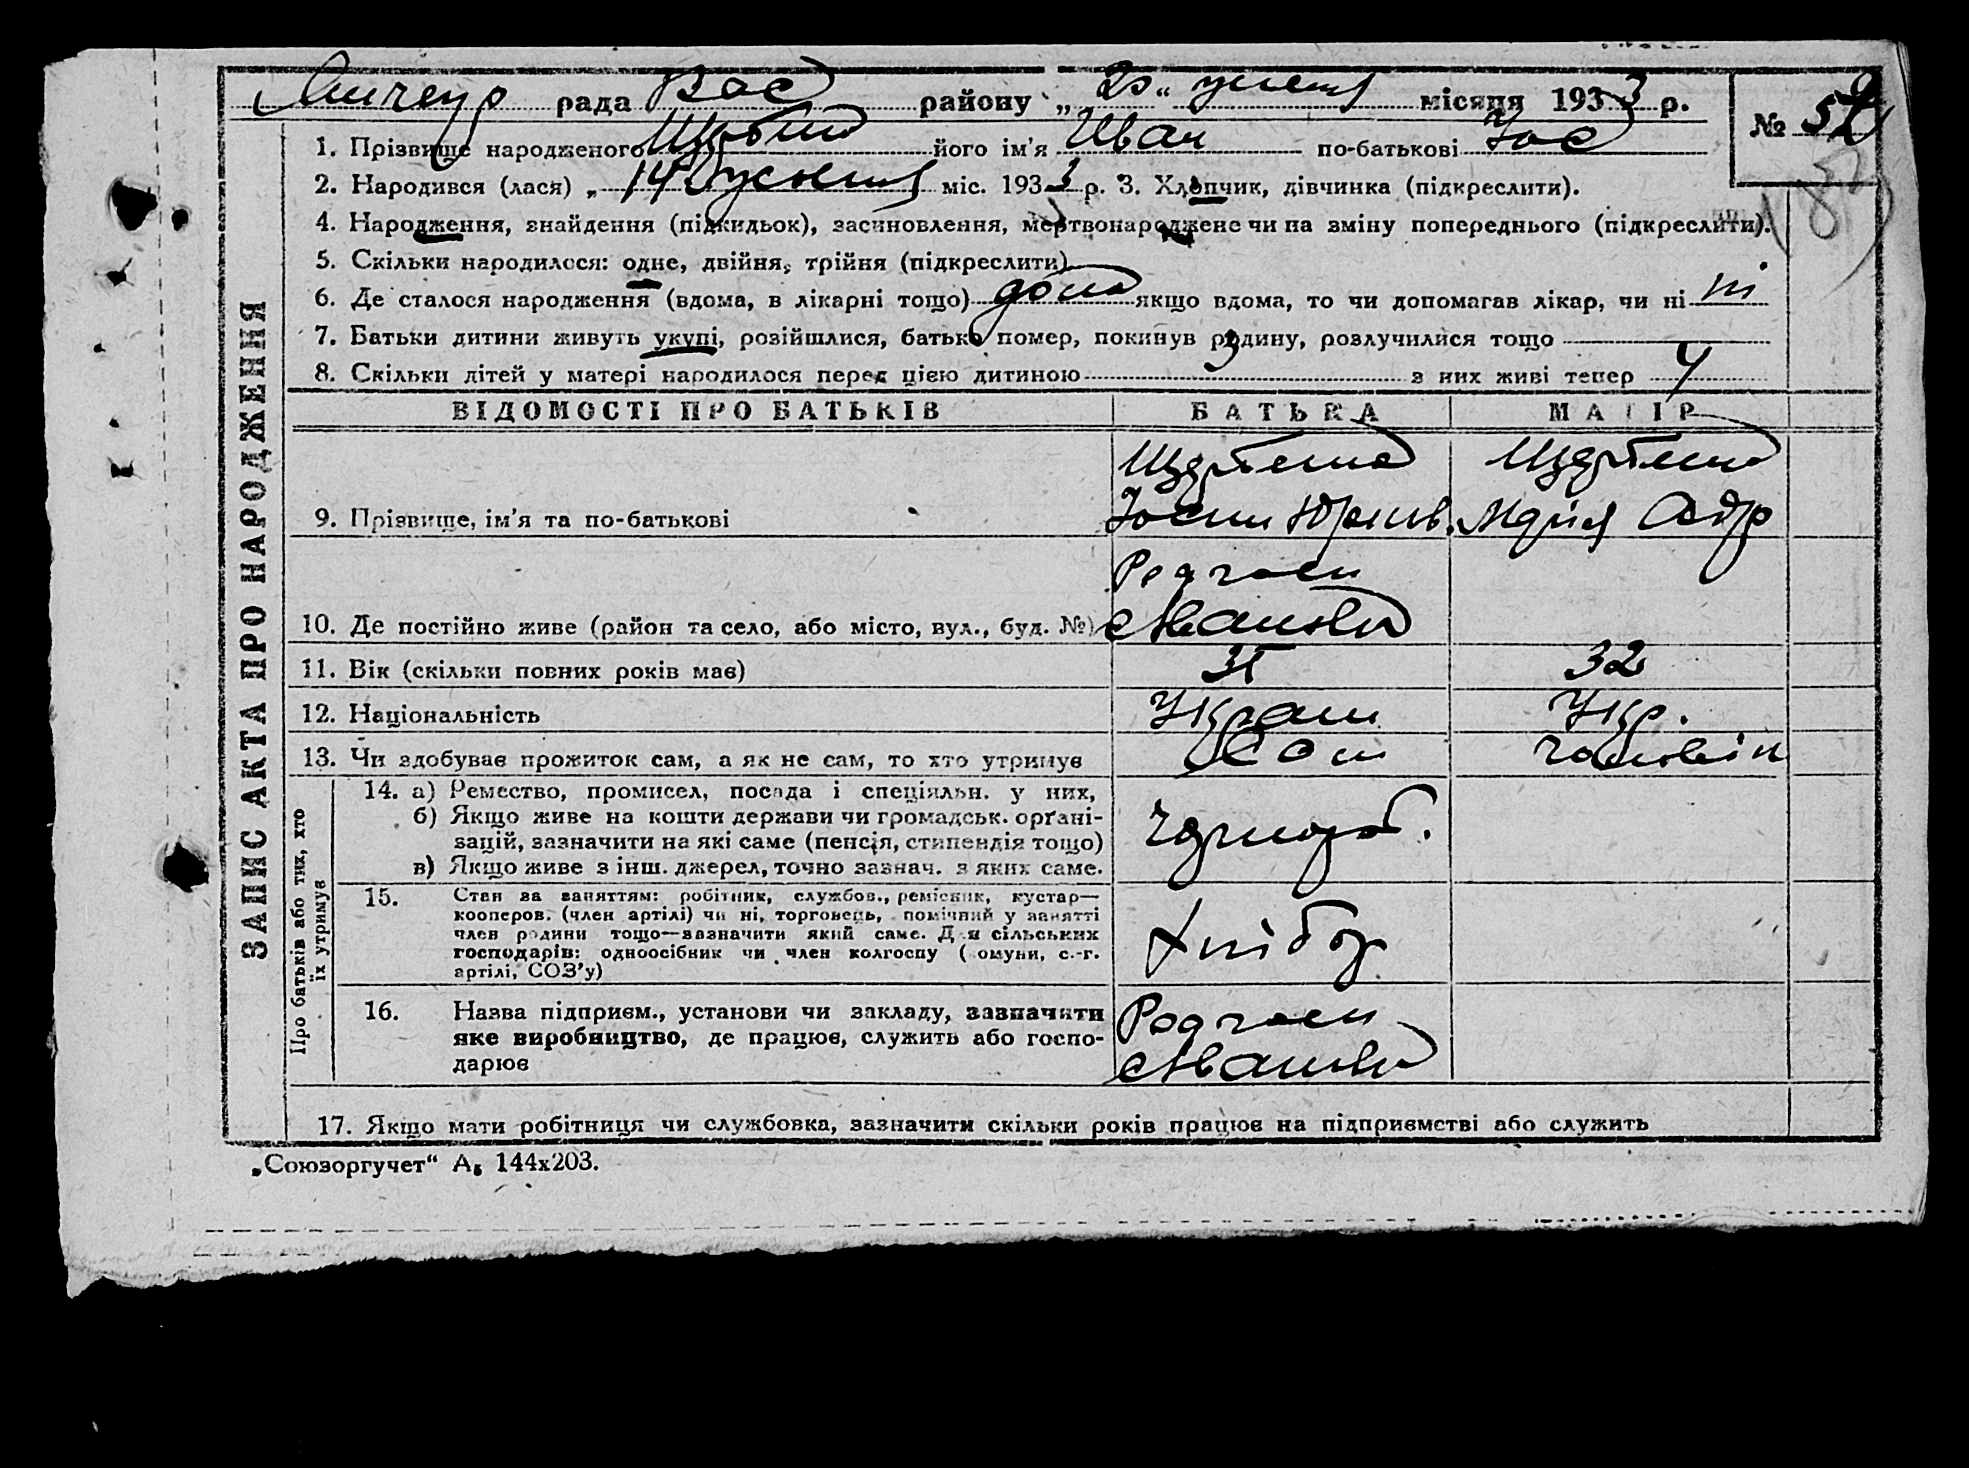 рада Вас району „ 20 “ 1933 р. № 52
1. Прізвище народженого його ім'я Іван по-батькові Йос
2. Народився (лася) „ 14 міс. 1933 р. 3. Хлопчик, дівчинка (підкреслити).
4. Народження, знайдення (підкидьок), засиновлення, мертвонароджене чи на зміну попереднього (підкреслити).
5. Скільки народилося: одне, двійня, трійня (підкреслити)
6. Де сталося народження (вдома, в лікарні тощо) дома якщо вдома, то чи допомагав лікар, чи ні ні
7. Батьки дитини живуть укупі, розійшлися, батько помер, покинув родину, розлучилися тощо
8. Скільки дітей у матері народилося перед цією дитиною 3 з них живі тепер 4
ВІДОМОСТІ ПРО БАТЬКІВ БАТЬКА МАТІР
9. Прізвище, ім'я та по-батькові Марія
10. Де постійно живе (район та село, або місто, вул., буд. №)
11. Вік (скільки повних років має) 32
12. Національність Украин Укр.
13. Чи здобуває прожиток сам, а як не сам, то хто утримує Сам чоловік
14. а) Ремество, промисел, посада і спеціяльн. у них,
б) Якщо живе на кошти держави чи громадськ. орґані-
зацій, зазначити на які саме (пенсія, стипендія тощо)
в) Якщо живе з інш. джерел, точно зазнач. з яких саме.
15. Стан за заняттям: робітник, службов., ремісник, кустар—
кооперов. (член артілі) чи ні, торговець, помічний у занятті
член родини тощо—зазначити який саме. Для сільських
господарів: одноосібник чи член колгоспу (комуни, с.-г.
артілі, СОЗ'у)
16. Назва підприєм., установи чи закладу, зазначити
яке виробництво, де працює, служить або госпо-
дарює
17. Якщо мати робітниця чи службовка, зазначити скільки років працює на підприємстві або служить
„Союзоргучет“ А₅ 144х203.
ЗАПИС АКТА ПРО НАРОДЖЕННЯ
Про батьків або тих, хто
їх утримує